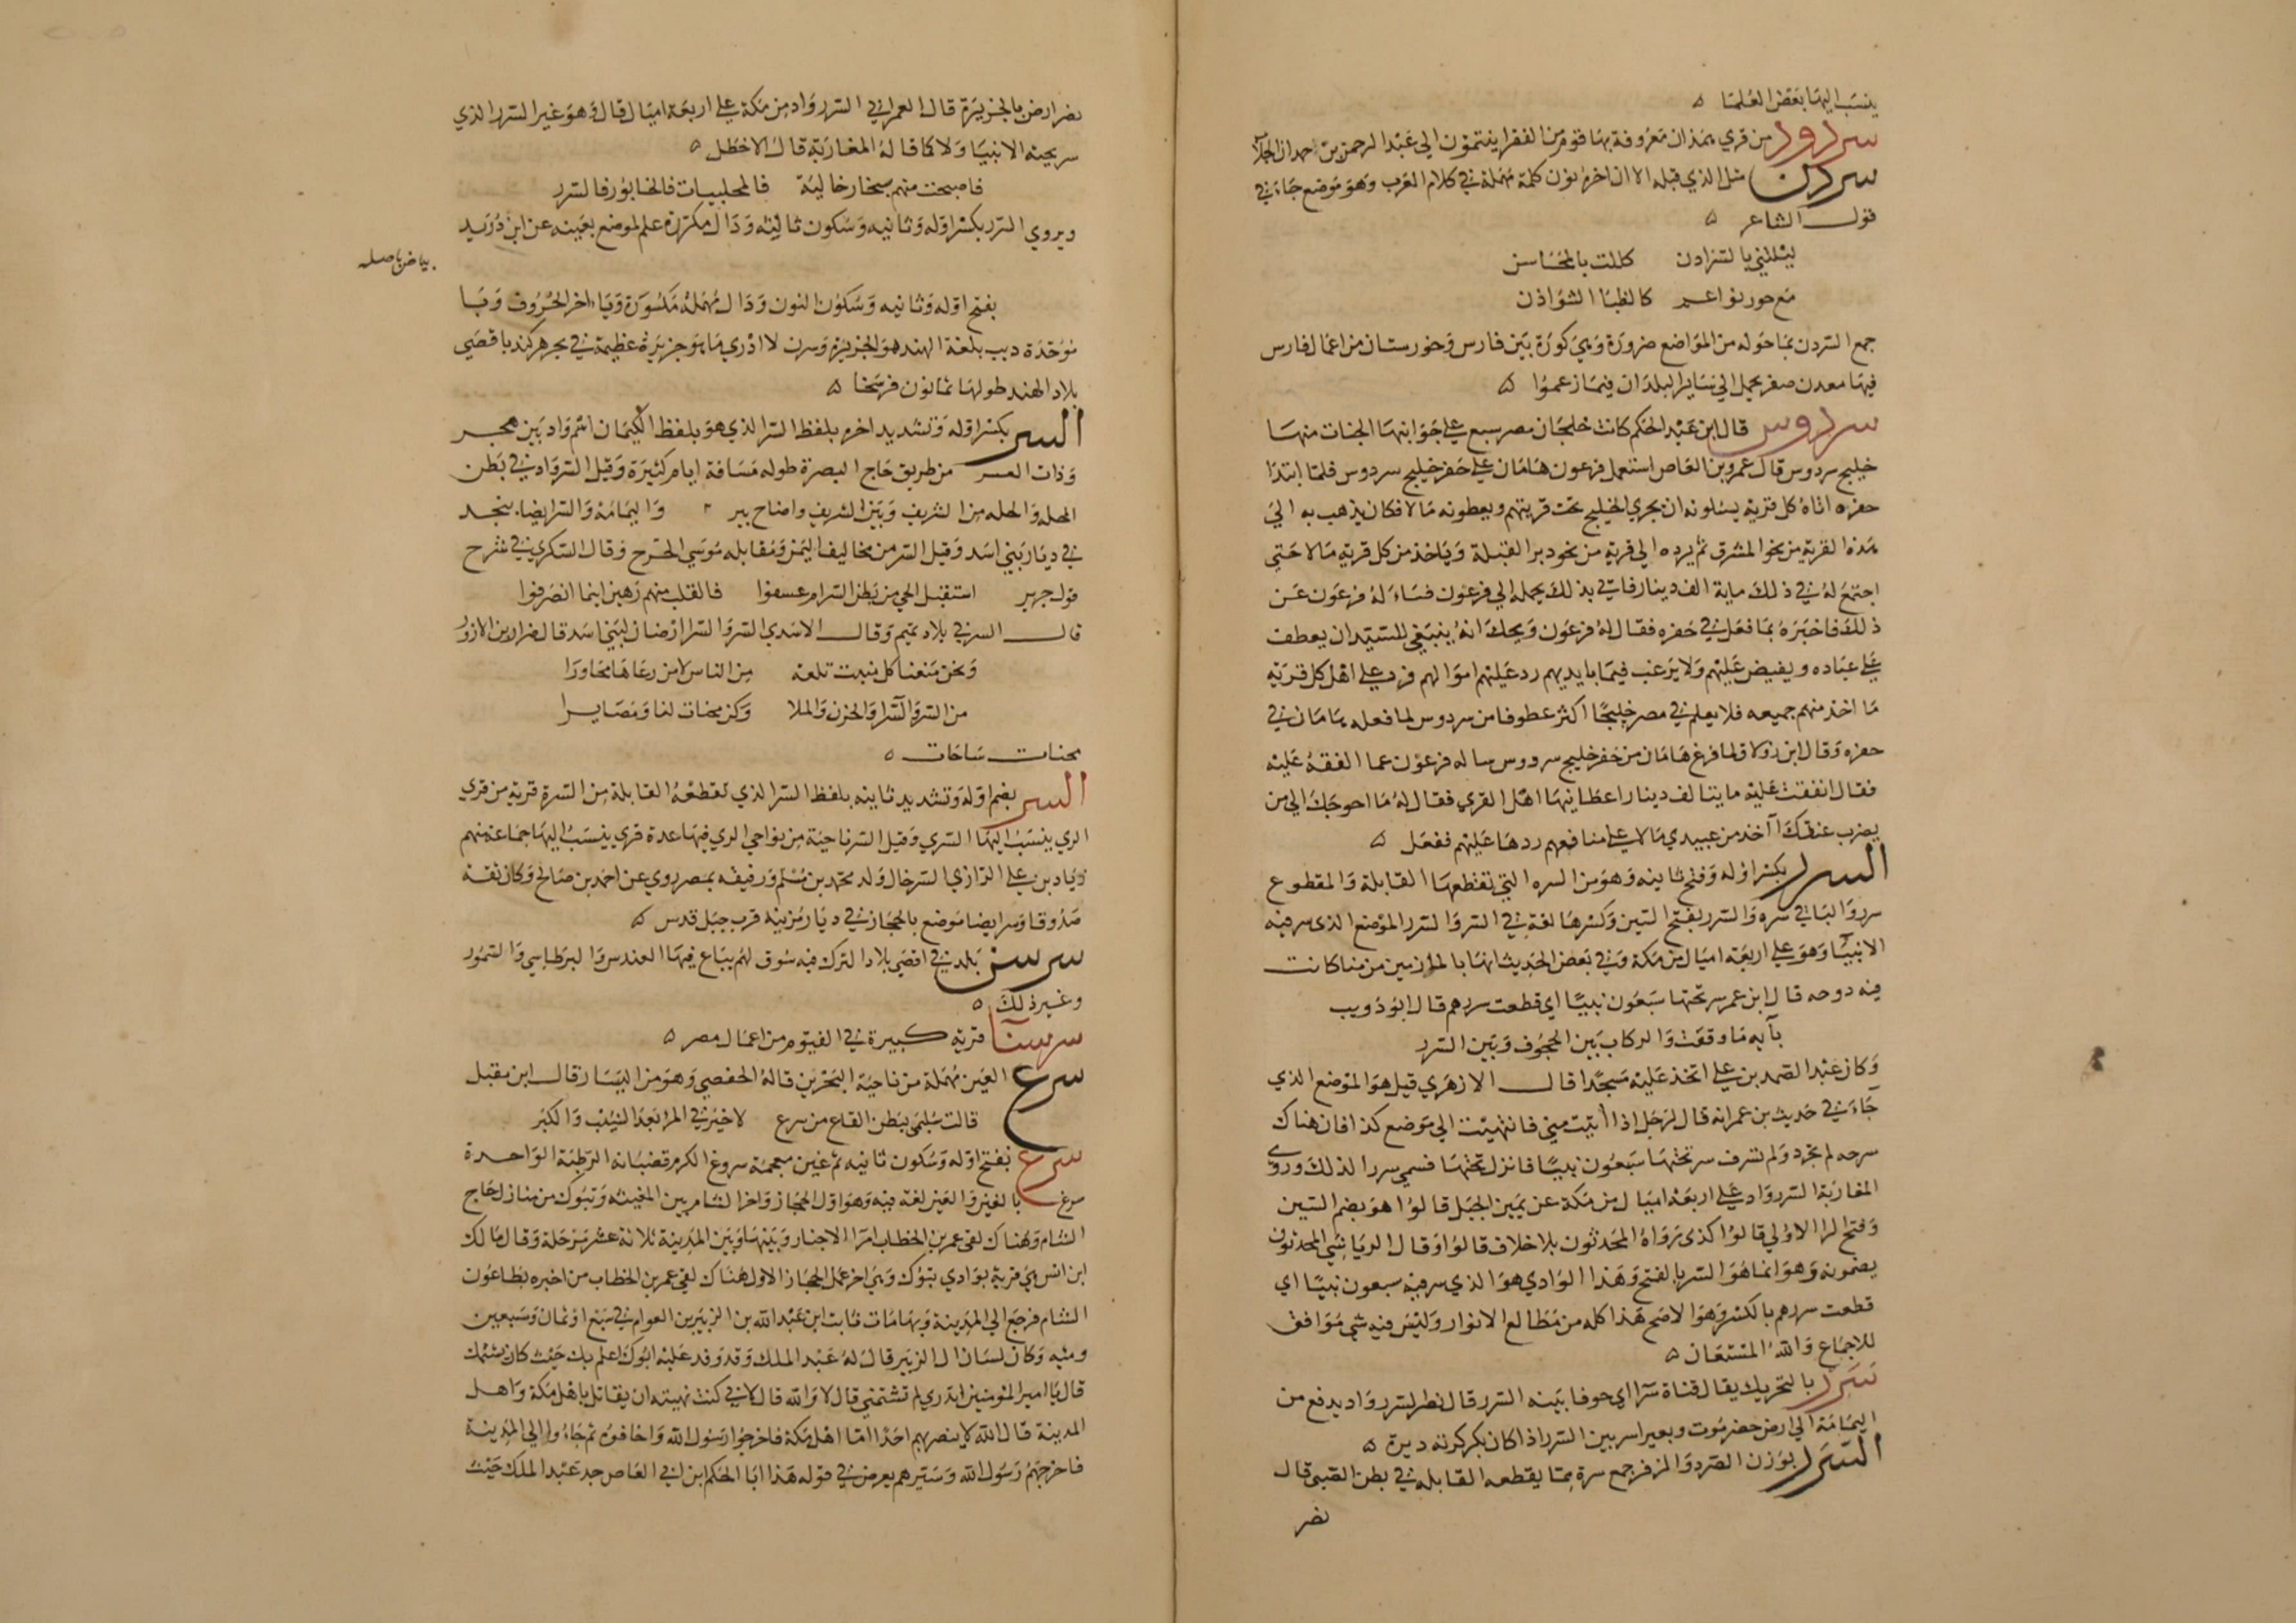 ينسب اليها بعض العلما ه
سردرود من قري همذان معروفة بها قوم من الفقرا ينتمون الي عبد الرحمن بن احمدان الجلاب
سردن مثل الذي قبله الا ان اخره نون كلمة مهملة في كلام العرب وهو موضع جاء في
قول الشاعر ه
ليتلني بالسرادن كللت بالمحاسن
مع حور نواعم كالظبا الشوادن
جمع السردن بما حوله من المواضع ضرورة وهي كورة بين فارس وخورستان من اعمال فارس
فيها معدن صفر يحمل الي ساير البلدان فيما زعموا ه
سردوس قال ابن عبد الحكم كانت خلجان مصر سبع علي جوانبها الجنات منها
خليج سردوس قال عمرو بن العاص استعمل فرعون هامان علي حفر خليج سردوس فلما ابتدا
حفره اتاه كل قرية يسلونه ان يجري الخليج تحت قريتهم ويعطونه مالا فكان يذهب به الي
هذه القرية من نحو المشرق ثم يرده الي قرية من نحو دبر القبلة وياخذ من كل قرية مالا حتي
اجتمع له في ذلك ماية الف دينار فاتي بذلك يحمله الي فرعون فساله فرعون عن
ذلك فاخبره بما فعل في حفره فقال له فرعون ويحك انه ينبغي للسيد ان يعطف
علي عباده ويفيض عليهم ولا يرغب فيما بايديهم رد عليهم اموالهم فرد علي اهل كل قرية
ما اخذ منهم جميعه فلا يعلم في مصر خليجا اكثر عطوفا من سردوس لما فعله هامان في
حفره وقال ابن زولاق لما فرغ هامان من حفر خليج سردوس ساله فرعون عما انفقه عليه
فقال انفقت عليه ماية الف دينار اعطانيها اهل القري فقال له ما احوجك الي من
يضرب عنقك آاخذ من عبيدي مالا علي منافعهم ردها عليهم ففعل ه
السرر بكسر اوله وفتح ثانيه وهو من السره التي تقطعها القابلة والمقطوع
سرر والباقي سره والسرر بفتح السين وكسرها لغة في السر والسرر الموضع الذي سر فيه
الانبيا وهو علي اربعة اميال من مكة وفي بعض الحديث انها بالمازمين من منا كانت
فيه دوحه قال ابن عمر سر تحتها سبعون نبيا اي قطعت سررهم قال ابو ذويب
بآيه ما وقفت والركاب بين الحجون وبين السرر
وكان عبد الصمد بن علي اتخذ عليه مسجدا قال الازهري قيل هو الموضع الذي
جاء في حديث بن عمر انه قال لرجل اذا اتيت مني فانتهيت الي موضع كذا فان هناك
سرحه لم تجرد ولم تسرف سر تحتها سبعون نبيا فانزل تحتها فسمي سررا لذلك وروي
المغاربة السرر واد علي اربعة اميال من مكة عن يمين الجبل قالوا هو بضم السين
وفتح الرا الاولي قالوا كذي رواه المحدثون بلا خلاف قالوا وقال الرياشي المحدثون
يضمونه وهو انما هو السرر بالفتح وهذا الوادي هو الذي سر فيه سبعون نبيا اي
قطعت سررهم بالكسر وهو الاصح هذا كله من مطالع الانوار وليس فيه شي موافق
للاجماع والله المستعان ه
سرر بالتحريك يقال قناة سرا اي جوفا بينه السرر قال نصر السرر واد يدفع من
اليمامة الي ارض حضرموت وبعير اسر بين السرر اذا كان بكركرته دبرة ه
السرر بوزن الصرد والزفر جمع سرة مما يقطعه القابله في بطن الصبي قال
نصر
نصر ارض بالجزيرة قال العمراني السرر واد من مكة علي اربعة اميال قال وهو غير السرر الذي
سر تحته الانبيا ولا كما قاله المغاربة قال الاخطل ه
فاصبحت منهم سنجار خالية فالمحلبيات فالخابور فالسرر
ويروي السرر بكسر اوله وثانيه وسكون ثالثه ودال مكررة علم لموضع بعينه عن ابن دريد
بياض باصله
بفتح اوله وثانيه وسكون النون ودال مهملة مكسورة وياء اخر الحروف وبا
موحدة ديب بلغة الهند هو الجزيرة وسرن لا ادري ما هو جزيرة عظيمة في بحر هركند باقصي
بلاد الهند طولها ثمانون فرسخا ه
السر بكسر اوله وتشديد اخره بلفظ السر الذي هو بلفظ الكتمان اسم واد بين هجر
وذات العسر من طريق حاج البصرة طوله مسافة ايام كثيرة وقيل السر واد في بطن
الحله والحله من الشريف وبين الشريف واضاح يبر واليمامة والسر ايضا بنجد
في ديار بني اسد وقيل السر من مخاليف اليمن ومقابله موسي الحرح وقال السكري في شرح
قول جرير استقبل الحي من بطن السر ام عسفوا فالقلب منهم رهين اينما انصرفوا
قال السر في بلاد تميم وقال الاسدي السر والسرا ارضان لبني اسد قال ضرار بن الازور
ونحن منعنا كل منبت تلعة من الناس الا من رعاها مجاورا
من السر والسرا والحزن والملا وكن مخنات لنا ومصايرا
مخنات ساحات ه
السر بضم اوله وتشديد ثانيه بلفظ السر الذي تقطعه القابلة من السرة قرية من قري
الري ينسب اليها السري وقيل السر ناحية من نواحي الري فيها عدة قري ينسب اليها جماعة منهم
زياد بن علي الرازي السر خال ولد محمد بن مسلم ورفيقه بمصر روي عن احمد بن صالح وكان ثقة
صدوقا وسر ايضا موضع بالحجاز في ديار مزينه قرب جبل قدس ه
سرسن بلد في اقصي بلاد الترك فيه سوق لهم يباع فيها القندس والبرطاسي والسمور
وغير ذلك ه
سرسنا قرية كبيرة في الفيوم من اعمال مصر ه
سرع العين مهملة من ناحية البحرين قاله الحفصي وهو من البيسار قال ابن مقبل
قالت سليمى ببطن القاع من سرع لا خير في المر بعد الشيب والكبر
سرغ بفتح اوله وسكون ثانيه ثم غين معجمة سروغ الكرم قضبانه الرطبة الواحدة
سرغ بالغين والعين لغة فيه وهو اول الحجاز واخر الشام بين المغيثه وتبوك من منازل حاج
الشام وهناك لقي عمر بن الخطاب امرا الاجناد وبينها وبين المدينة ثلاثة عشر مرحلة وقال مالك
ابن انس هي قرية بوادي تبوك وهي اخر عمل الحجاز الاول هناك لقي عمر بن الخطاب من اخبره بطاعون
الشام فرجع الي المدينة وبها مات ثابت ابن عبد الله بن الزبير بن العوام في سبع او ثمان وسبعين
وميه وكان لسان ال الزبير قال له عبد الملك وقد وفد عليه ابوك اعلم بك حيث كان يشتمك
قال يا امير المومنين اتدري لم تشتمني قال لا والله قال لاني كنت نهيته ان يقاتل باهل مكة واهل
المدينة قال الله لا ينصر بهم احدا اما اهل مكة فاخرجوا رسول الله واخافوه ثم جاءوا الي المدينة
فاخرجهم رسول الله وسيرهم يعرض في قوله هذا ابا الحكم ابن ابي العاص جد عبد الملك حيث